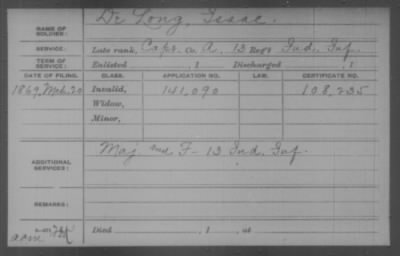 NAME OF SOLDIER: De Long, Isaac.
SERVICE: Late rank, Capt. Co. A, 13 Reg't Ind. Inf.
TERM OF SERVICE: Enlisted , 1 Discharged , 1
DATE OF FILING. CLASS. APPLICATION NO. LAW. CERTIFICATE NO.
1869, Mch. 20 Invalid, 141,090 108,235
Widow,
Minor,
ADDITIONAL SERVICES: Maj and F- 13 Ind. Inf.
REMARKS:
Died , 1 , at